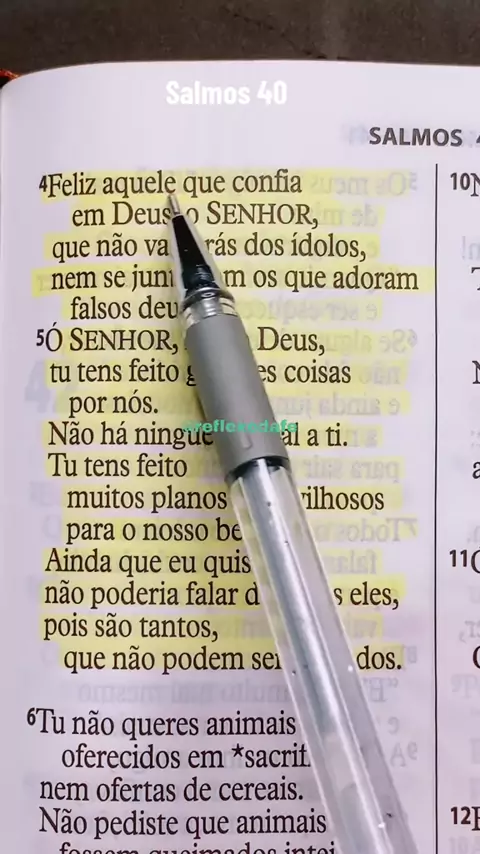 Salmos 40
SALMOS 4
4Feliz aquele que confia
em Deus, o SENHOR,
que não va rás dos ídolos,
nem se jun m os que adoram
falsos deu
5Ó SENHOR, Deus,
tu tens feito g es coisas
por nós.
Não há ningué al a ti.
Tu tens feito
muitos planos vilhosos
para o nosso be
Ainda que eu quis
não poderia falar d s eles,
pois são tantos,
que não podem ser dos.
6Tu não queres animais
oferecidos em *sacrif
nem ofertas de cereais.
Não pediste que animais
fossem queimados intei
10
11
12